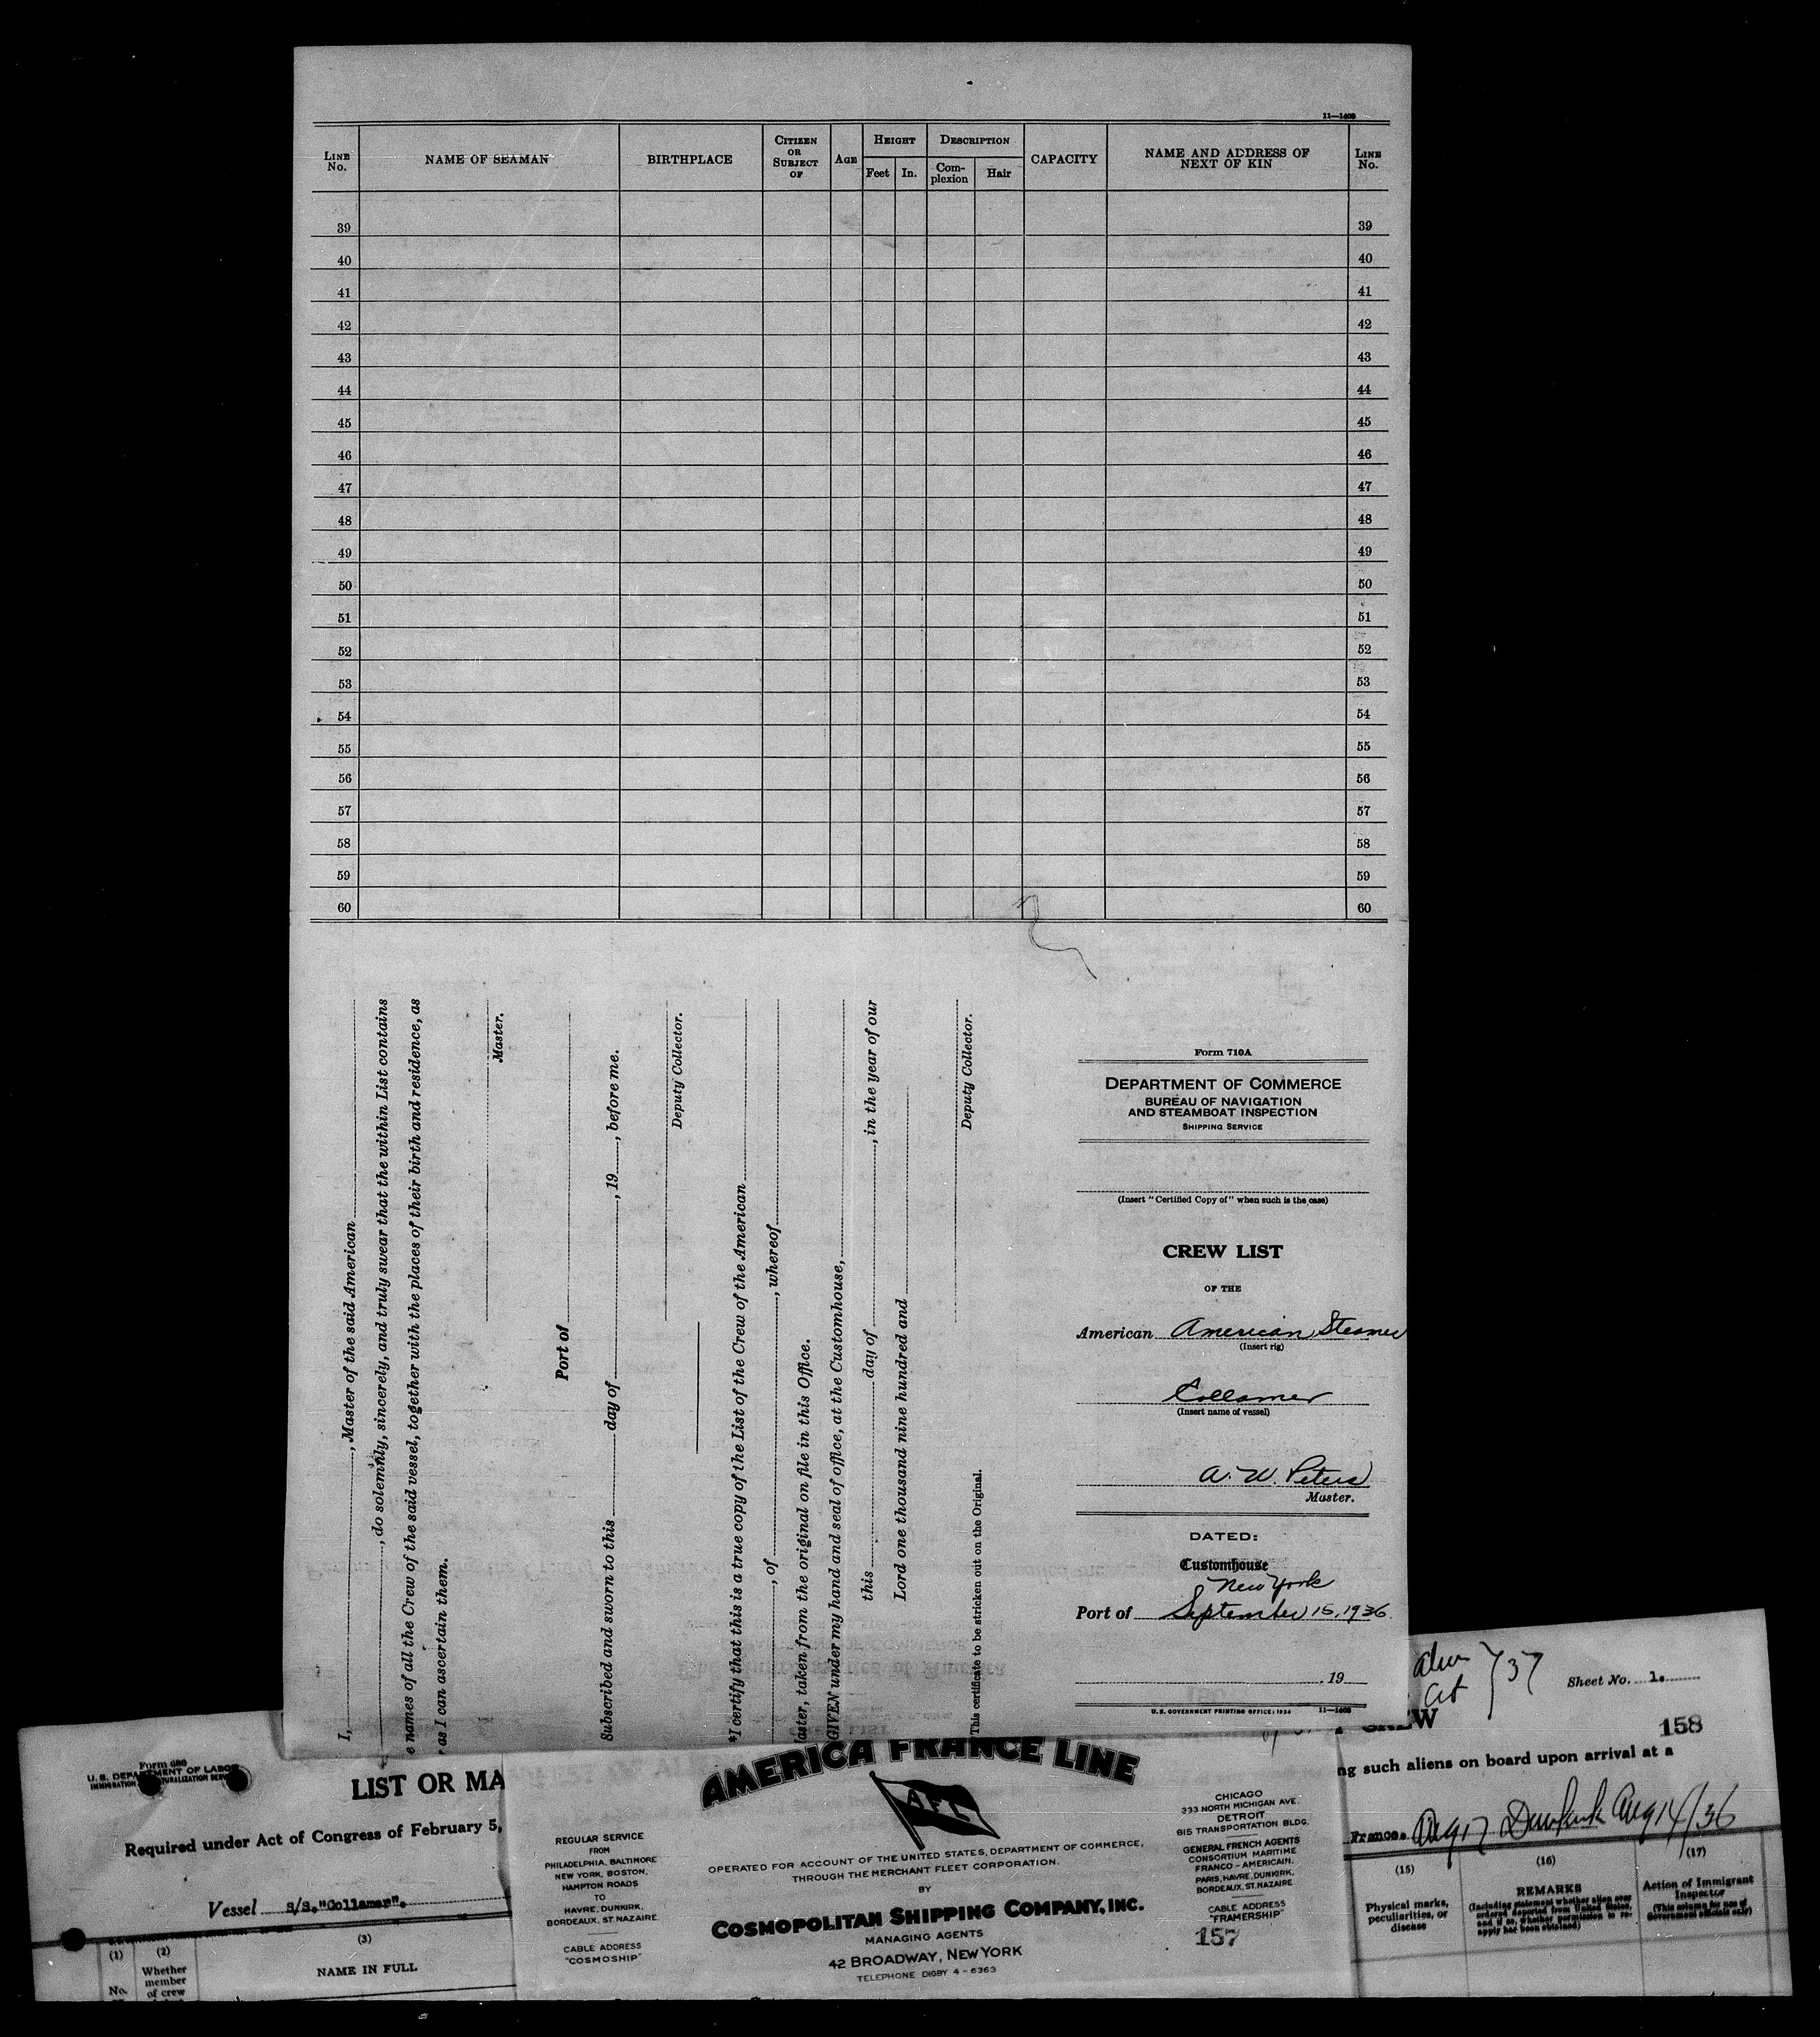 11—1408
LINE No.
NAME OF SEAMAN
BIRTHPLACE
CITIZEN OR SUBJECT OF
AGE
HEIGHT
Feet
In.
DESCRIPTION
Com-plexion
Hair
CAPACITY
NAME AND ADDRESS OF NEXT OF KIN
LINE No.
39 39
40 40
41 41
42 42
43 43
44 44
45 45
46 46
47 47
48 48
49 49
50 50
51 51
52 52
53 53
54 54
55 55
56 56
57 57
58 58
59 59
60 60
I, , Master of the said American
, do solemnly, sincerely, and truly swear that the within List contains
e names of all the Crew of the said vessel, together with the places of their birth and residence, as
r as I can ascertain them.
Master.
Port of
Subscribed and sworn to this day of , 19 , before me.
Deputy Collector.
*I certify that this is a true copy of the List of the Crew of the American
, of , whereof
aster, taken from the original on file in this Office.
GIVEN under my hand and seal of office, at the Customhouse,
this day of , in the year of our
Lord one thousand nine hundred and
Deputy Collector.
This certificate to be stricken out on the Original.
Form 710A
DEPARTMENT OF COMMERCE
BUREAU OF NAVIGATION
AND STEAMBOAT INSPECTION
SHIPPING SERVICE
(Insert "Certified Copy of" when such is the case)
CREW LIST
OF THE
American American Steamer
(Insert rig)
Collamer
(Insert name of vessel)
A. W. Peters
Master.
DATED:
Customhouse
New York
Port of September 15, 1936
, 19
U. S. GOVERNMENT PRINTING OFFICE: 1934 11—1408
Form 680
U. S. DEPARTMENT OF LABOR
LIST OR MA
Required under Act of Congress of February 5,
Vessel S/S. "Collamer".
(1)
(2)
(3)
No.
Whether member of crew
NAME IN FULL
AMERICA FRANCE LINE
AFL
REGULAR SERVICE
FROM
PHILADELPHIA, BALTIMORE
NEW YORK, BOSTON,
HAMPTON ROADS
TO
HAVRE, DUNKIRK,
BORDEAUX, ST. NAZAIRE
CABLE ADDRESS
"COSMOSHIP"
OPERATED FOR ACCOUNT OF THE UNITED STATES, DEPARTMENT OF COMMERCE,
THROUGH THE MERCHANT FLEET CORPORATION.
BY
COSMOPOLITAN SHIPPING COMPANY, INC.
MANAGING AGENTS
42 BROADWAY, NEW YORK
TELEPHONE DIGBY 4-6363
CHICAGO
333 NORTH MICHIGAN AVE.
DETROIT
815 TRANSPORTATION BLDG.
GENERAL FRENCH AGENTS
CONSORTIUM MARITIME
FRANCO-AMERICAIN,
PARIS, HAVRE, DUNKIRK,
BORDEAUX, ST. NAZAIRE
CABLE ADDRESS
"FRAMERSHIP"
157
37
Sheet No. 1.
CREW
158
ng such aliens on board upon arrival at a
France. Aug 17 Dunkirk Aug 14/36
(15)
(16)
(17)
Physical marks, peculiarities, or disease
REMARKS
(Including statement whether alien ever ordered deported from United States, and if so, whether permission to re-apply has been obtained)
Action of Immigrant Inspector
(This column for use of Government officials only)